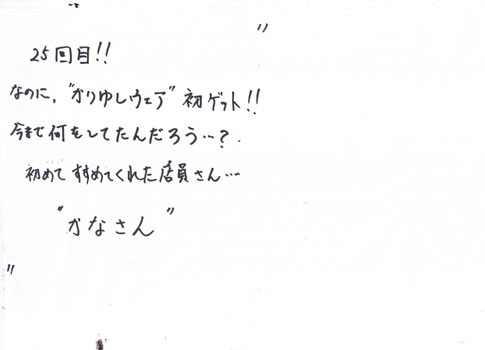 "
25回目!!
なのに、"かりゆしウェア" 初ゲット!!
今まで何をしてたんだろう…?
初めてすすめてくれた店員さん…
"かなさん"
"